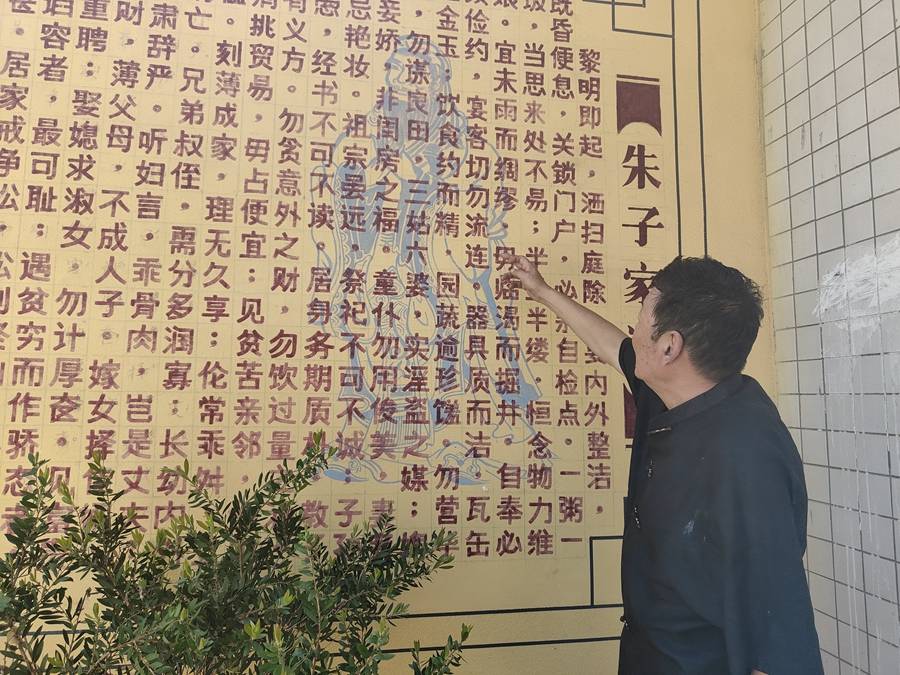 朱子家
黎明即起，洒扫庭除 要内外整洁，
既昏便息，关锁门户，必亲自检点。一粥一
饭，当思来处不易；半 半缕，恒念物力维
宜未雨而绸缪，毋临渴而掘井。自奉必
须俭约，宴客切勿流连。器具质而洁 瓦缶
金玉；饮食约而精 园蔬逾珍馐。勿营华
，勿谋良田，三姑六婆，实淫盗之媒；婢
妾娇，非闺房之福。童仆勿用俊美，妻
忌艳妆。祖宗虽远，祭祀不可不诚；子孙
愚，经书不可不读。居身务期质朴，教子
有义方。勿贪意外之财，勿饮过量
肩挑贸易，毋占便宜；见贫苦亲邻，
刻薄成家，理无久享；伦常乖舛
亡。兄弟叔侄，需分多润寡；长幼内
肃辞严。听妇言，乖骨肉，岂是丈夫
财，薄父母，不成人子。嫁女择
重聘；娶媳求淑女，勿计厚奁。见富
谄容者，最可耻；遇贫穷而作骄态
甚。居家戒争讼，
讼则终